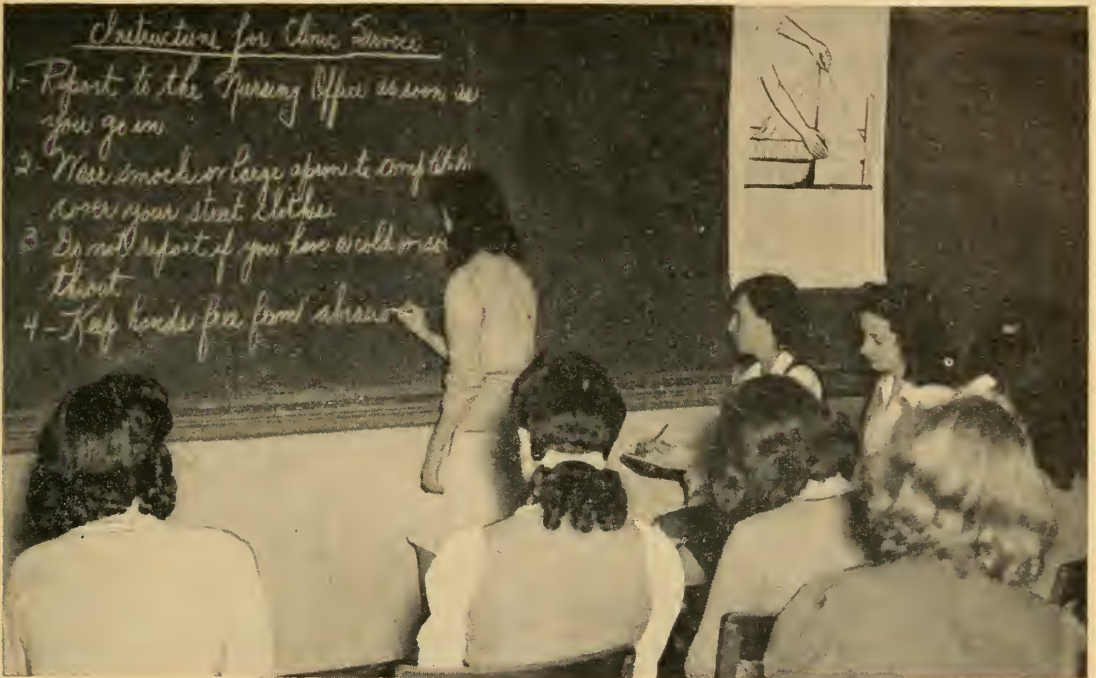 Instructions for Clinic Service
1.- Report to the Nursing Office as soon as
you go in
2- Wear smock or large apron to completely
cover your street clothes
3 Do not report if you have a cold or sore
throat
4- Keep hands free from abrasion